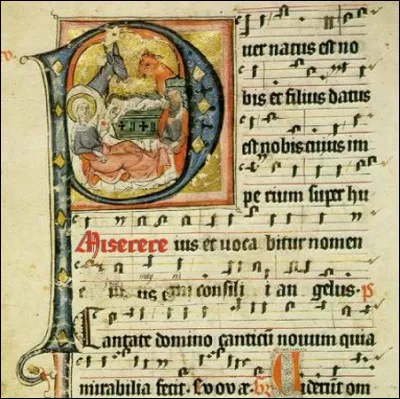 Puer natus est no
bis et filius datus
est nobis cuius im
pe rium super hu
Miserere ius et uoca bitur nomen
consili i an gelus. ps
Cantate domino canticū nouum quia
mirabilia fecit. Euouae Gr Viderunt om